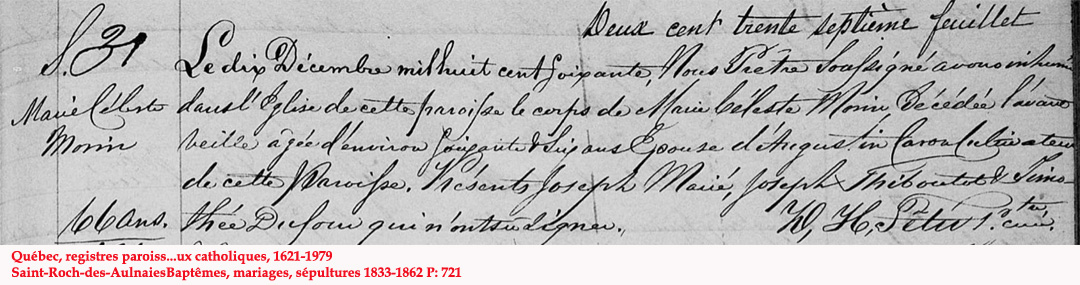 Deux cent trente septième feuillet
S. 31
Le dix Décembre mil huit cent soixante, Nous Prêtre Soussigné avons inhumé
Marie Céleste
dans l'Eglise de cette paroisse le corps de Marie Céleste Morin, Décédée l'avant
Morin
veille âgée d'environ soixante & six ans Epouse d'Augustin Caron Cultivateur
de cette Paroisse. Présents Joseph Marié, Joseph Thiboutot & Timo-
66 ans.
thée Dufour qui n'ont su signer.
D. H. Têtu Ptre. curé.
Québec, registres paroiss...ux catholiques, 1621-1979
Saint-Roch-des-AulnaiesBaptêmes, mariages, sépultures 1833-1862 P: 721